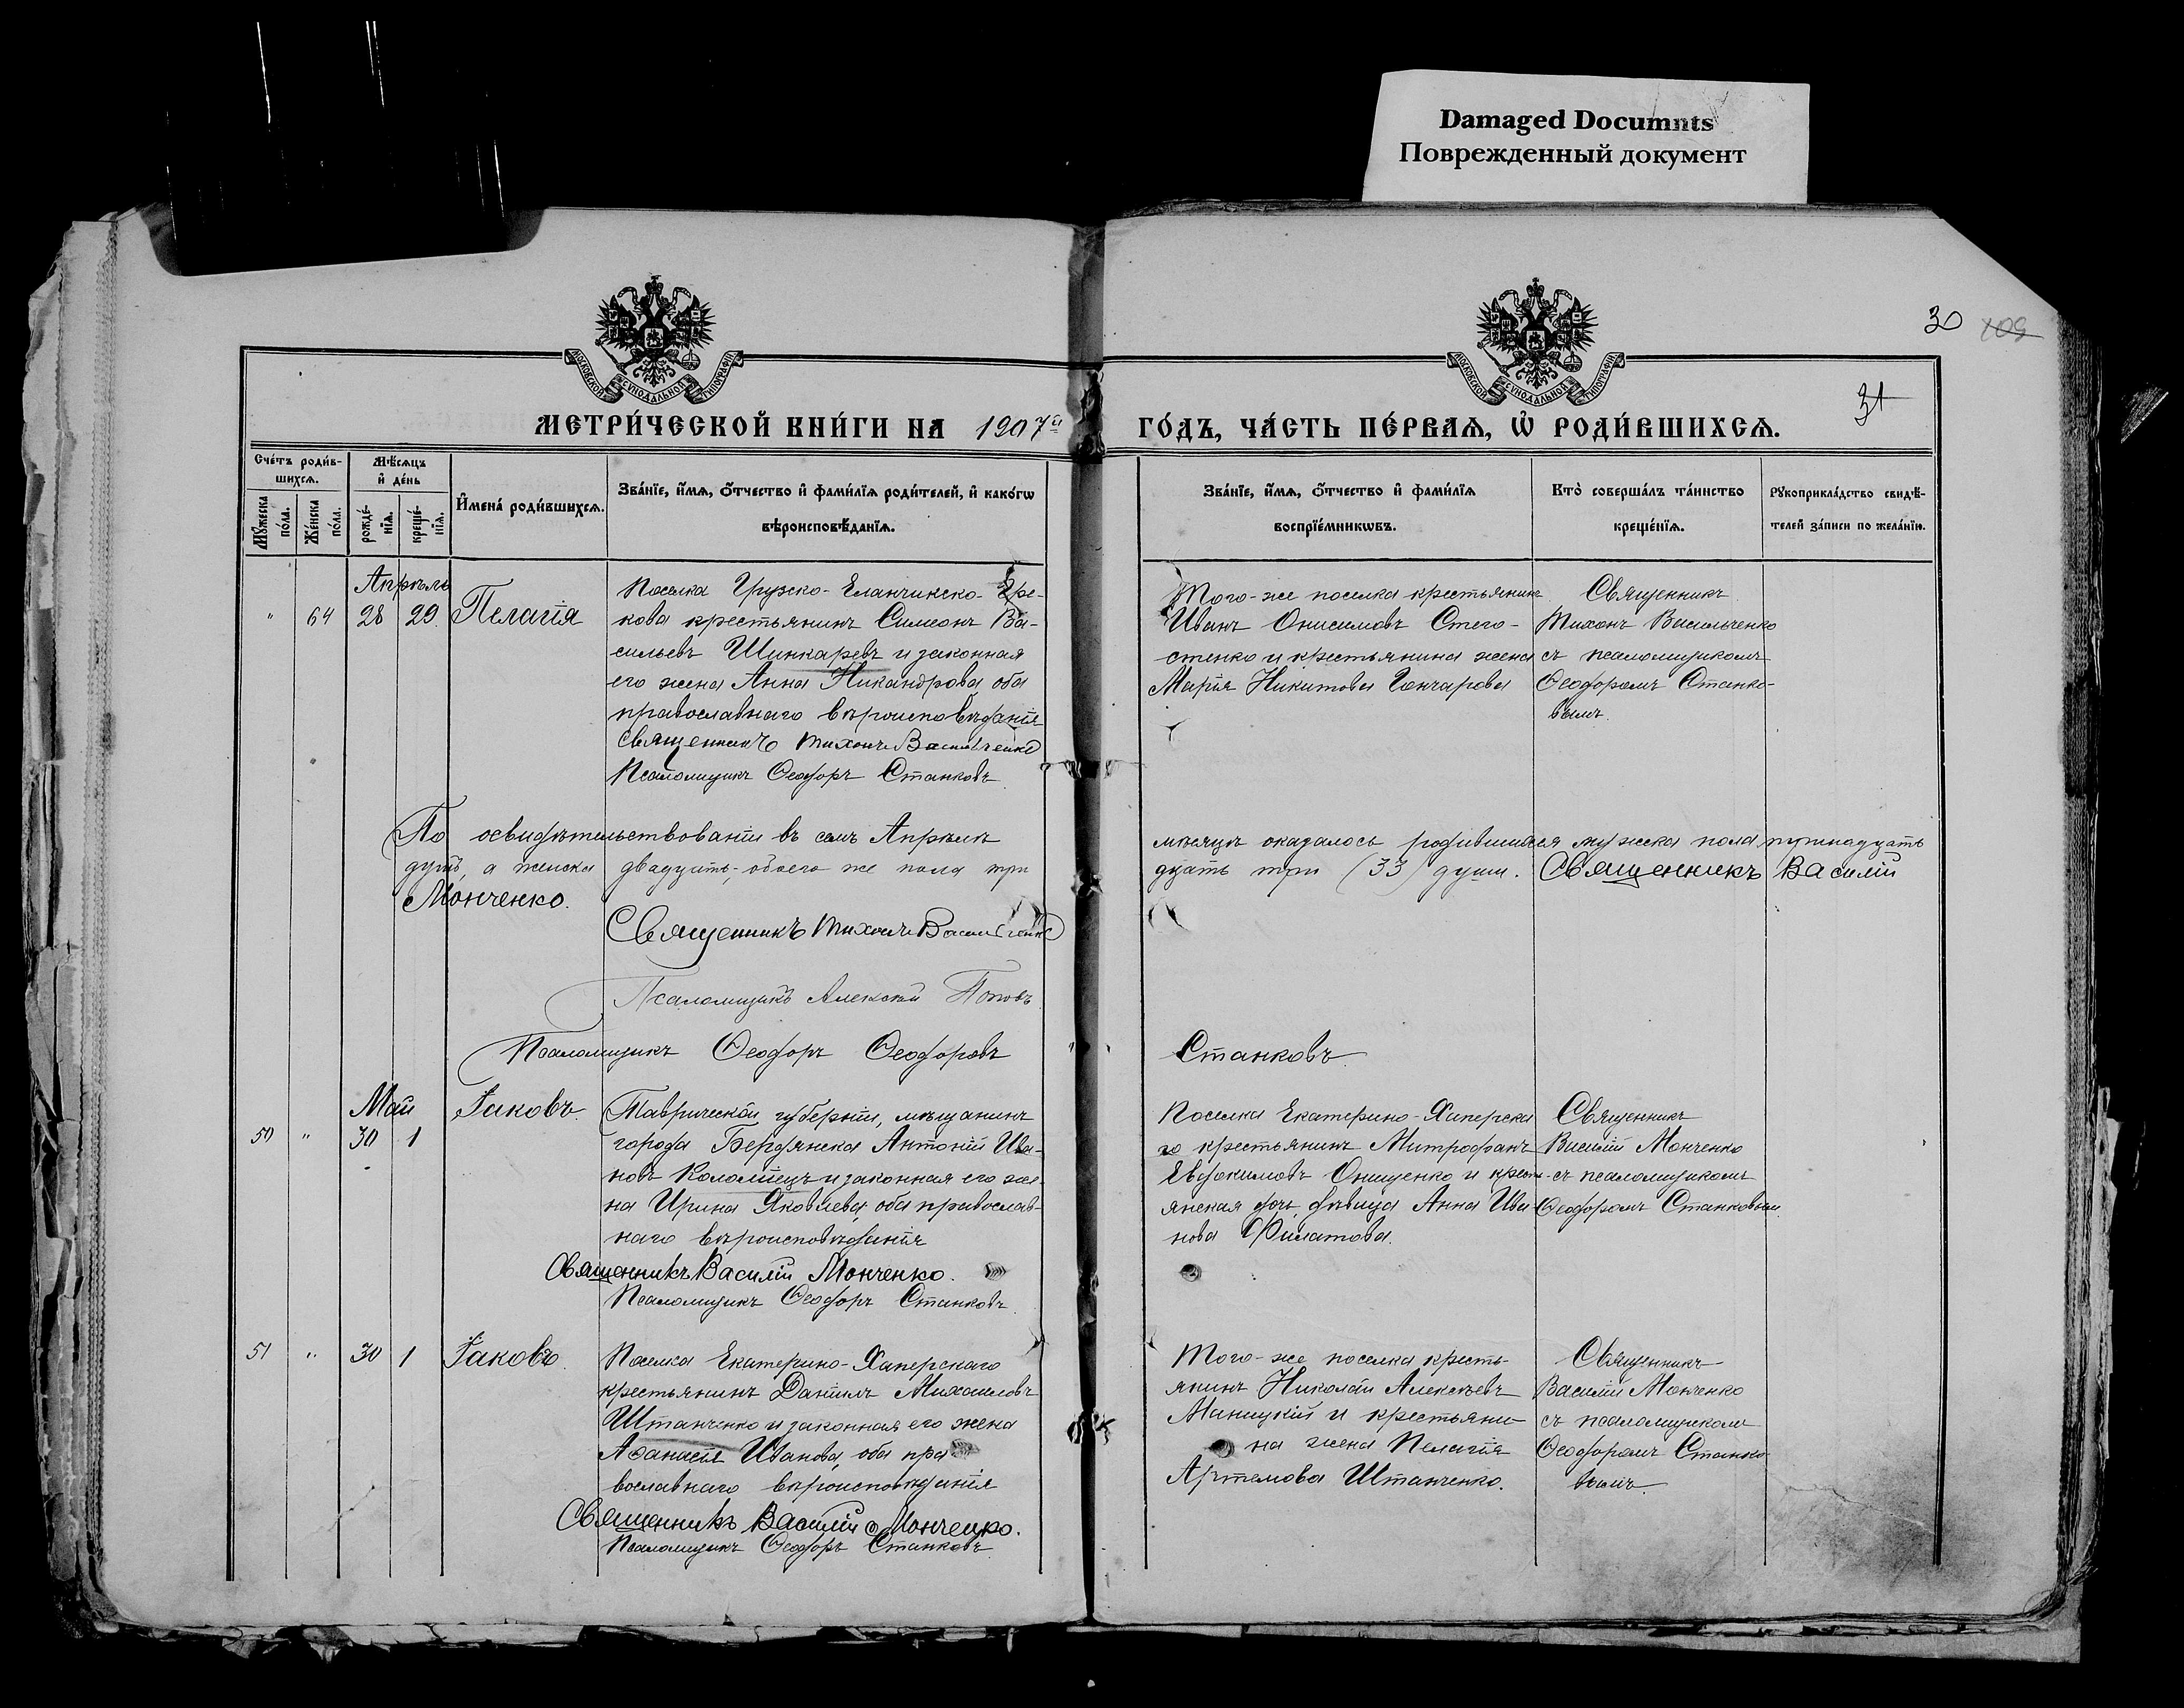 Damaged Documnts
Поврежденный документ
30 109
31
МОСКОВСКОЙ СУНОДАЛЬНОЙ ТИПОГРАФІИ
МОСКОВСКОЙ СУНОДАЛЬНОЙ ТИПОГРАФІИ
МЕТРИ́ЧЕСКОЙ КНИ́ГИ НА 1907й
ГО́ДЪ, ЧА́СТЬ ПЕ́РВАѦ, Ѡ РОДИ́ВШИХСѦ.
Сче́тъ роди́в-
шихсѧ.
Мꙋ́жеска по́ла.
Же́нска по́ла.
Мѣ́сѧцъ
и де́нь
рожде́-
нїѧ.
креще́-
нїѧ.
Имена̀ роди́вшихсѧ.
Зва́нїе, и́мѧ, ѻ́тчество и фами́лїѧ роди́телей, и како́гѡ
вѣроисповѣ́данїѧ.
Зва́нїе, и́мѧ, ѻ́тчество и фами́лїѧ
воспрїе́мникѡвъ.
Кто̀ соверша́лъ та́инство
креще́нїѧ.
Рꙋкоприкла́дство свидѣ́-
телей за́писи по жела́нїю.
Апрѣль
" 64 28 29 Пелагія
Поселка Грузско-Еланчикско-Гре-
кова крестьянинъ Симеонъ Ва-
сильевъ Шинкаревъ и законная
его жена Анна Никандрова оба
православнаго вѣроисповѣданія
Священникъ Тихонъ Васильченко
Псаломщикъ Ѳеодоръ Станковъ
Того-же поселка крестьянинъ
Иванъ Онисимовъ Стего-
стенко и крестьянина жена
Марія Никитова Гончарова
Священникъ
Тихонъ Васильченко
съ псаломщикомъ
Ѳеодоромъ Станко-
вымъ.
По освидѣтельствованіи въ семъ Апрѣлѣ
мѣсяцѣ оказалось родившихся мужска пола тринадцать
душъ, а женска двадцать, обоего же пола три
дцать три (33) души. Священникъ Василій
Монченко.
Священникъ Тихонъ Васильченко
Псаломщикъ Алексѣй Поповъ
Псаломщикъ Ѳеодоръ Ѳеодоровъ
Станковъ
Май
50 " 30 1 Іаковъ
Таврической губерніи, мѣщанинъ
города Бердянска Антоній Ива-
новъ Коломіецъ и законная его же-
на Ирина Яковлева, оба православ-
наго вѣроисповѣданія
Священникъ Василій Монченко.
Псаломщикъ Ѳеодоръ Станковъ
Поселка Екатерино-Хаперска
го крестьянинъ Митрофанъ
Евдокимовъ Онищенко и кресть-
янская дочь, дѣвица Анна Ива
нова Филатова.
Священникъ
Василій Монченко
съ псаломщикомъ
Ѳеодоромъ Станковым
51 " 30 1 Іаковъ
Поселка Екатерино-Хаперскаго
крестьянинъ Даніилъ Михаиловъ
Штанченко и законная его жена
Аѳанасія Иванова, оба пра
вославнаго вѣроисповѣданія
Священникъ Василій Монченко.
Псаломщикъ Ѳеодоръ Станковъ
Того-же поселка кресть-
янинъ Николай Алексѣевъ
Маницкій и крестьяни-
на жена Пелагія
Артемова Штанченко.
Священникъ
Василій Монченко
съ псаломщикомъ
Ѳеодоромъ Станко
вымъ.